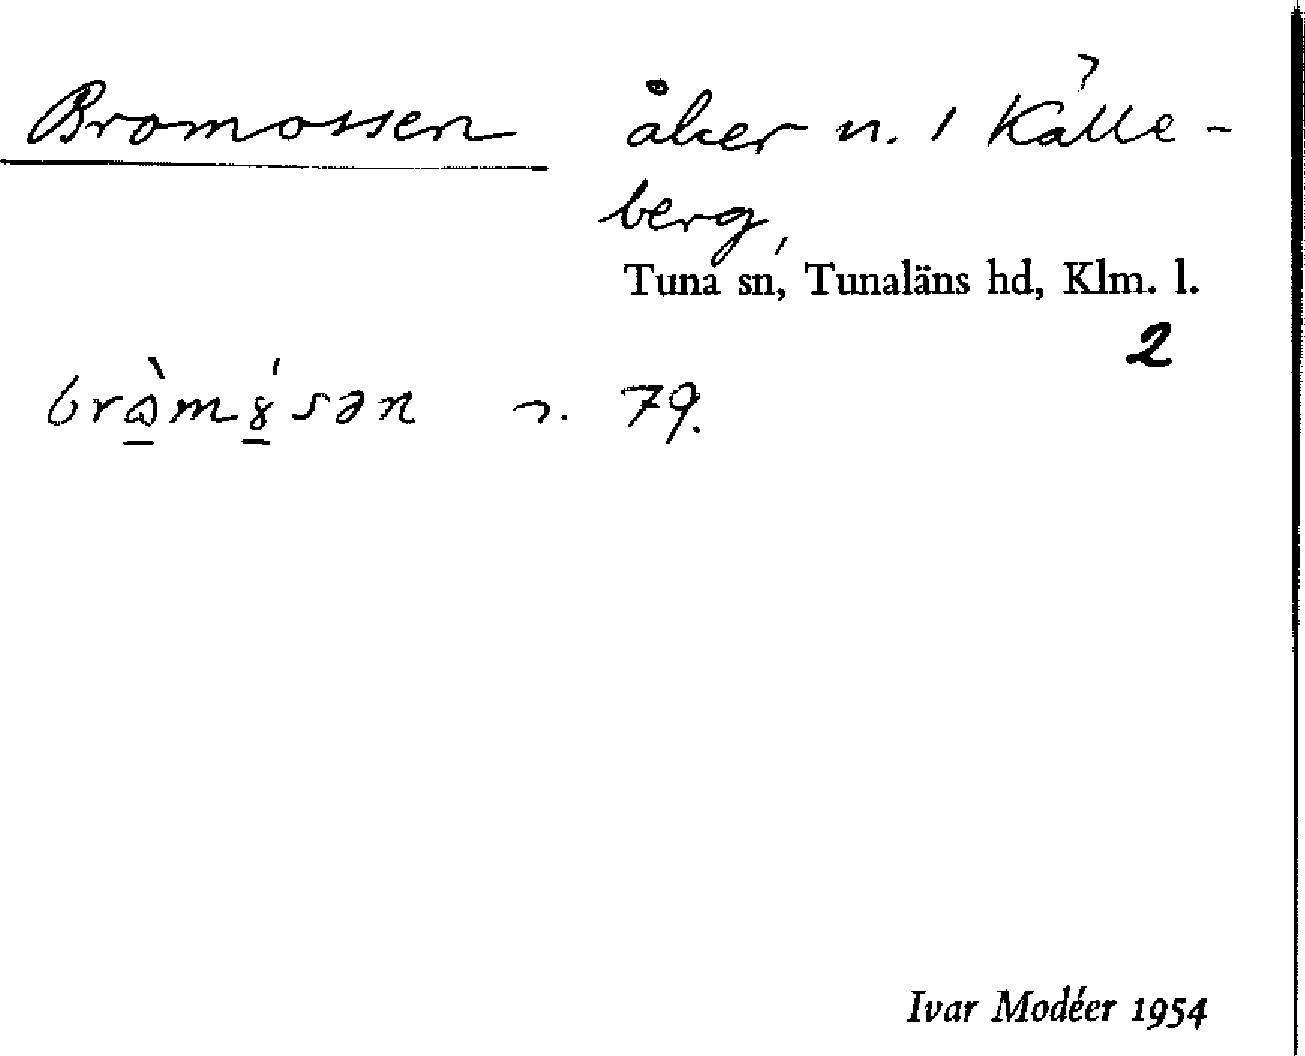 Bromossen åker n. 1 Källe-
berg,
Tuna sn, Tunaläns hd, Klm. l.
2
79.
Ivar Modéer 1954